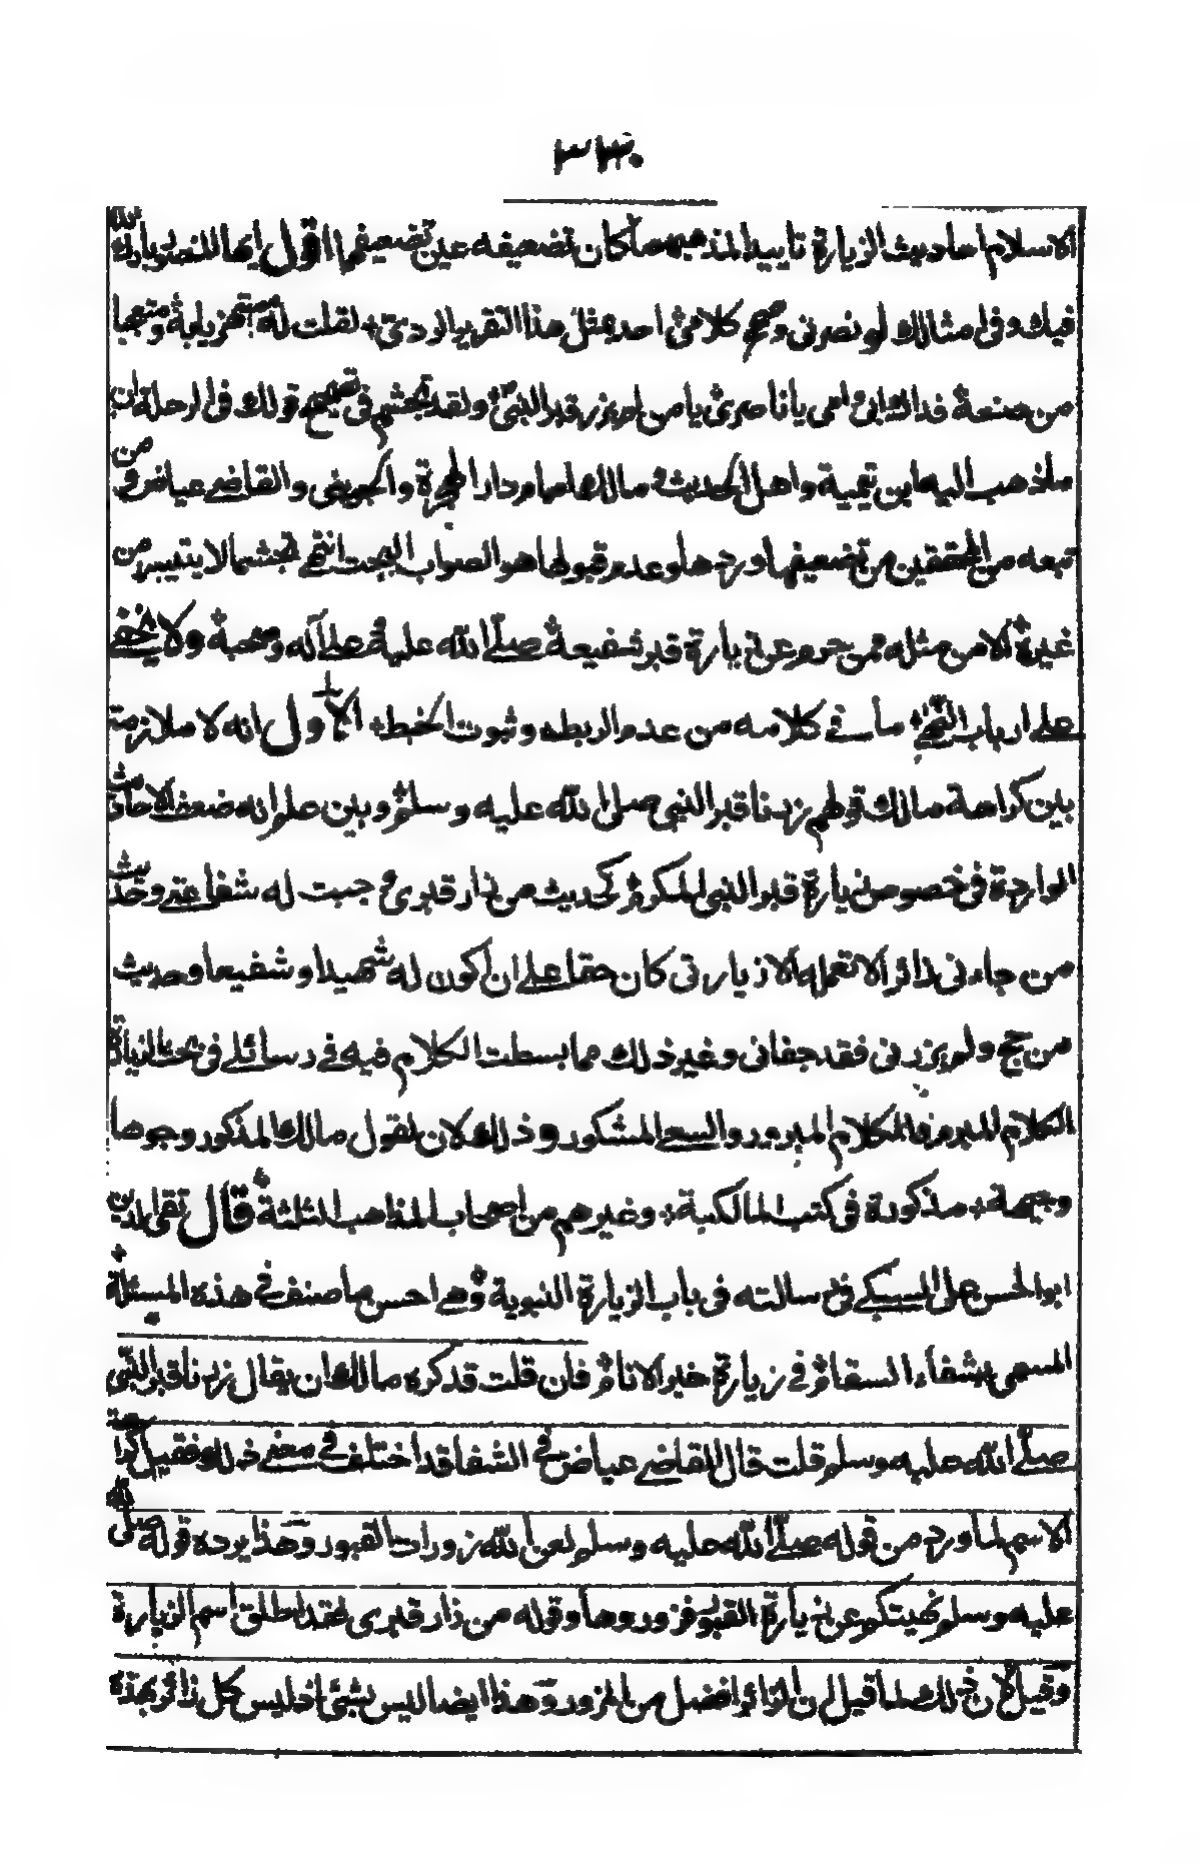 ٣٣٠
الاسلام احاديث الزيارة تاييدا لمذهبه ما كان تضعيفه عين تضعيفها اقول ايها المنصور بارك الله
فيك وفي امثالك لو نصرني وصحح كلامي احد بمثل هذا التقرير الردي لقلت له مستهزيا به ومتعجبا
من صنعة فداك ابي وامي يا ناصري يا من لم يزر قبر النبي ولقد تجشم في تصحيح قولك في الرحلة ان
ما ذهب اليه ابن تيمية واهل الحديث و مالك امام دار الهجرة والجويني والقاضي عياض و من
تبعه من المحققين من تضعيفها وردها وعدم قبولها هو الصواب البحت انتهى تجشما لا يتيسر من
غيره الا من مثله ممن حرم عن زيارة قبر شفيعه صلى الله عليه وعلى آله وصحبه ولا يخفى
على ارباب النهى ما في كلامه من عدم الربط وثبوت الخطا الاول انه لا ملازمة
بين كراهة مالك قولهم زرنا قبر النبي صلى الله عليه وسلم وبين علم انه ضعف الاحاديث
الواردة في خصوص زيارة قبر النبي المكرم كحديث من زار قبري وجبت له شفاعتي وحديث
من جاءني زائرا لا تعمله الا زيارتي كان حقا على ان اكون له شهيدا وشفيعا وحديث
من حج ولم يزرني فقد جفاني وغير ذلك مما بسطت الكلام فيه في رسائلي في بحث الزيارة
الكلام المبرم والكلام المبرور والسعي المشكور وذلك لان لقول مالك المذكور وجوها
وجيهة مذكورة في كتب المالكية وغيرهم من اصحاب المذاهب الثلثة قال تقي الدين
ابو الحسن علي السبكي في رسالته في باب الزيارة النبوية وهي احسن ما صنف في هذه المسئلة
المسمى بشفاء السقام في زيارة خير الانام فان قلت قد كره مالك ان يقال زرنا قبر النبي
صلى الله عليه وسلم قلت قال القاضي عياض في الشفا قد اختلف في معنى ذلك فقيل كراهة
الاسم لما ورد من قوله صلى الله عليه وسلم لعن الله زورات القبور وهذا يرده قوله صلى الله
عليه وسلم نهيتكم عن زيارة القبور فزوروها وقوله من زار قبري فقد اطلق اسم الزيارة
وقيل لان ذلك لما قيل ان الزائر افضل من المزور وهذا ايضا ليس بشئ اذ ليس كل زائر بهذه